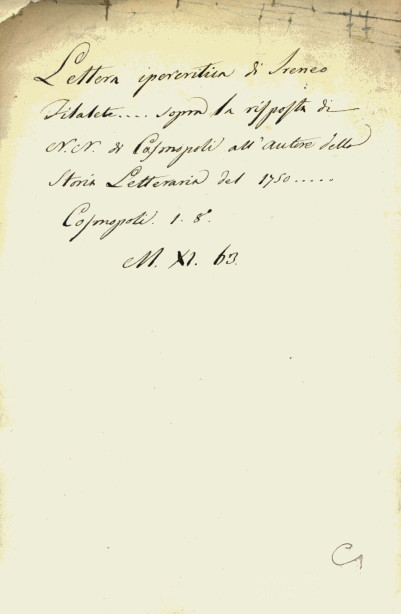 Lettera ipercritica di Ireneo
Filalete.... sopra la risposta di
N.N. di Cosmopoli all'Autore della
Storia Letteraria del 1750.....
Cosmopoli. 1. 8º.
M. XI. 63.